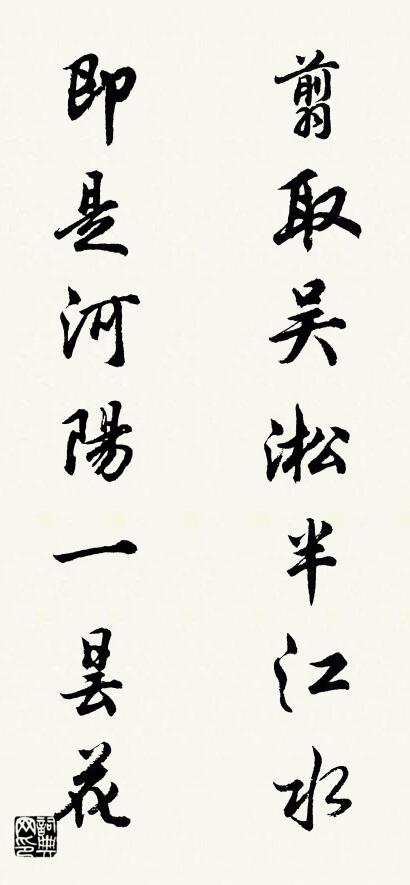 翦取吴淞半江水
即是河陽一昙花
詞典网印